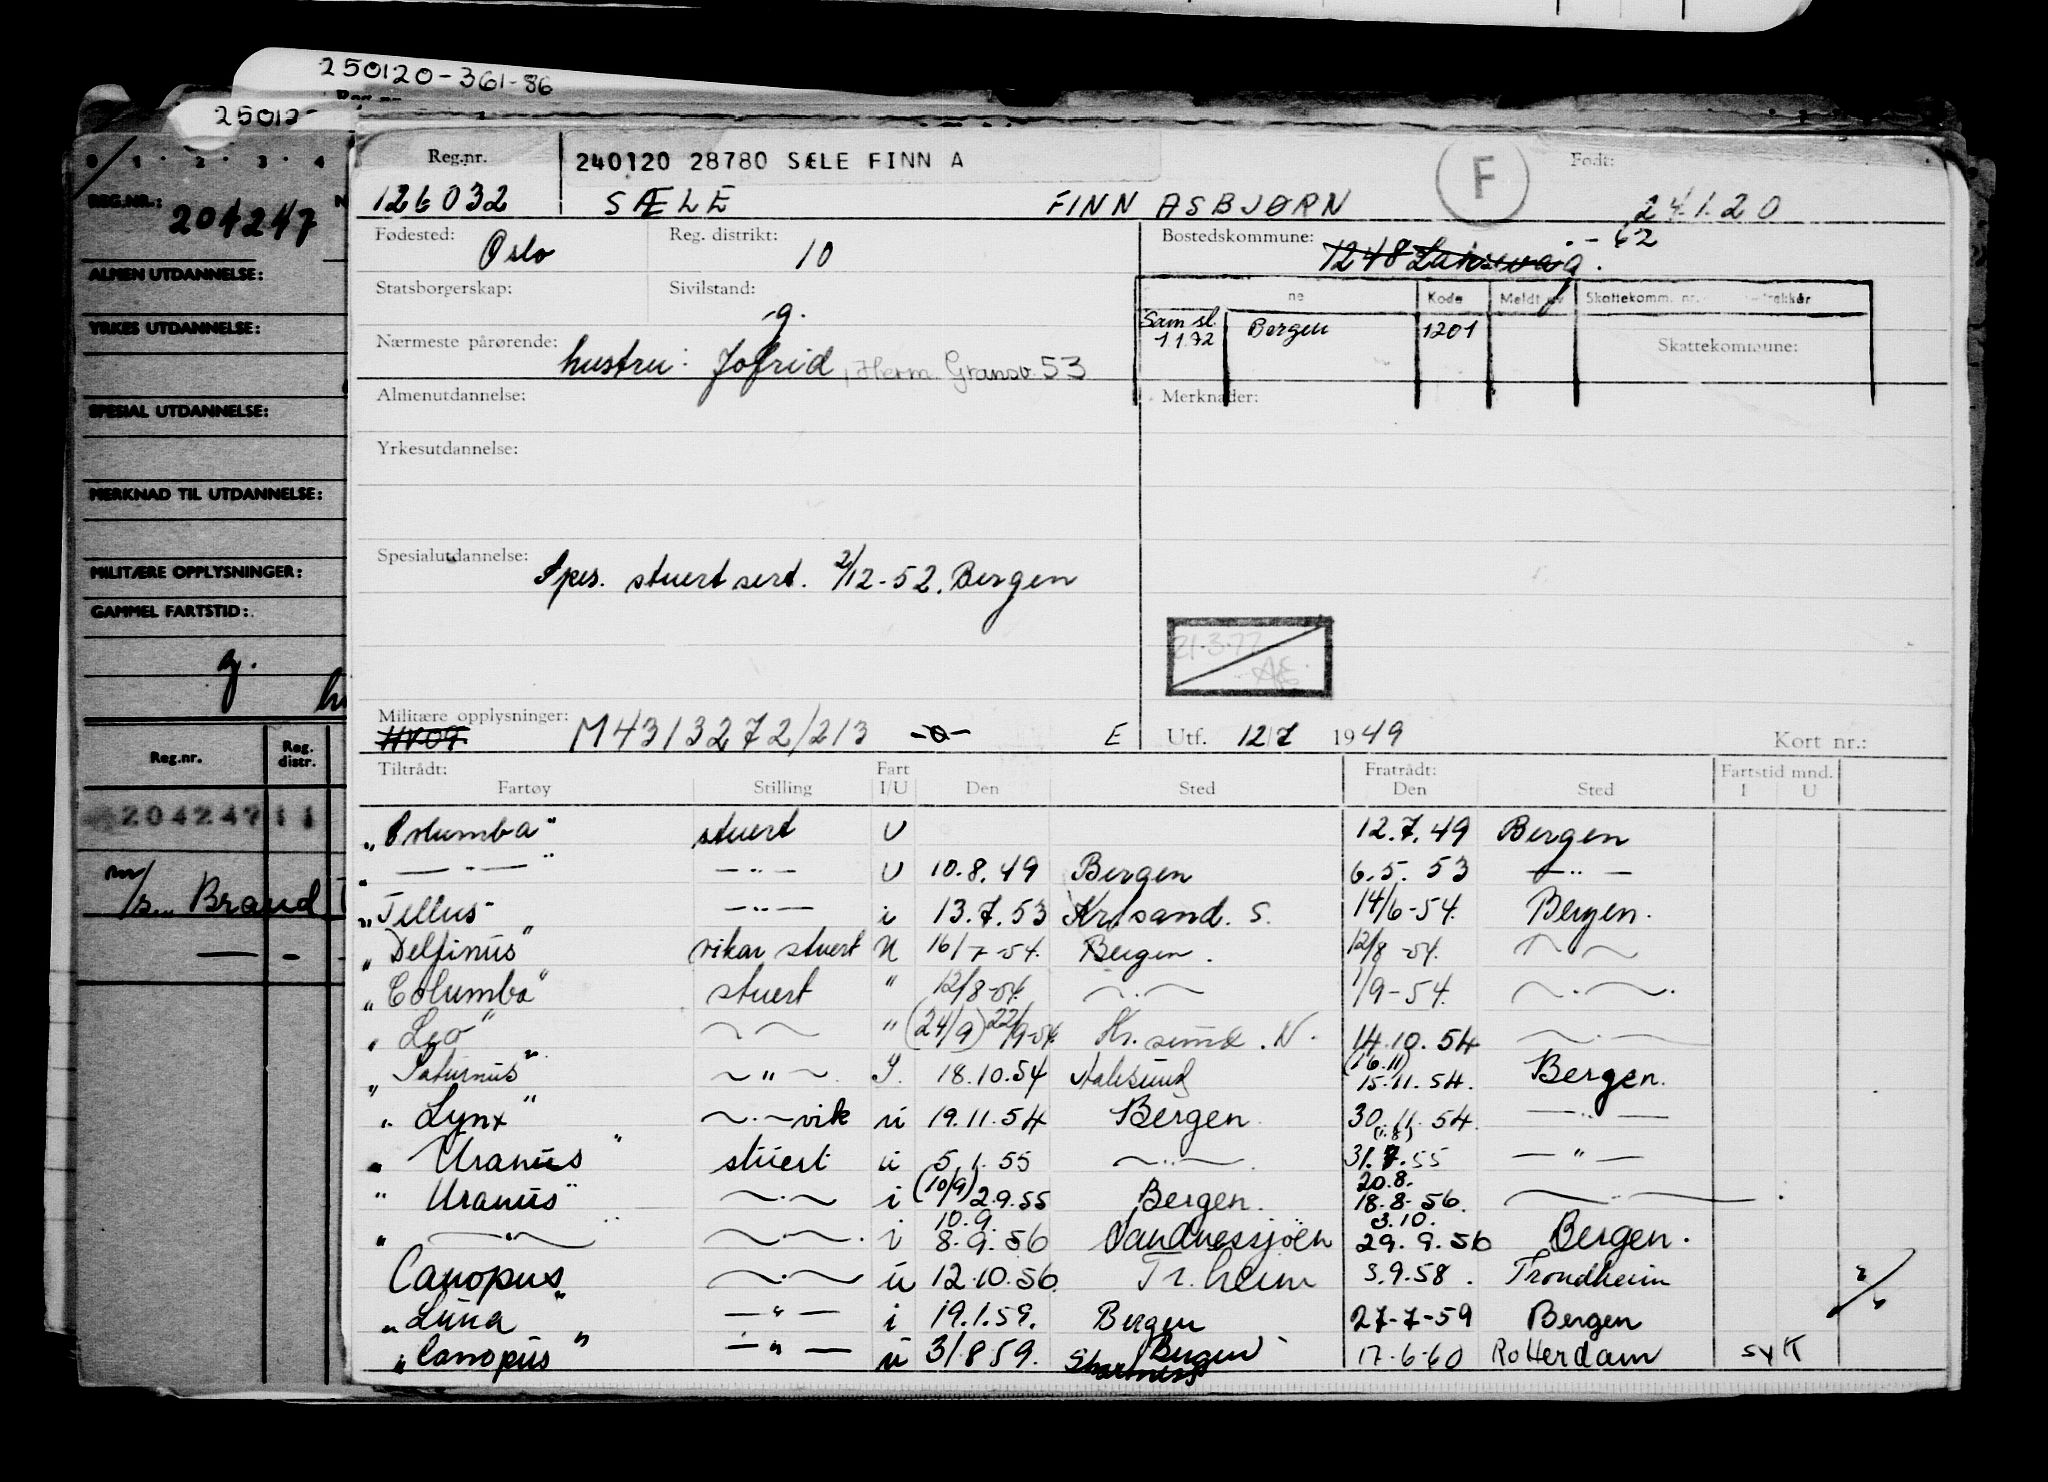 250120-361-86
25012-
0 1 · 2 · 3 · 4
REG.NR.: 204247
ALMEN UTDANNELSE:
YRKES UTDANNELSE:
SPESIAL UTDANNELSE:
MERKNAD TIL UTDANNELSE:
MILITÆRE OPPLYSNINGER:
GAMMEL FARTSTID:
g.
Reg.nr. Reg. distr.
204247 11
m/s Brand
— - —
Reg.nr. 240120 28780 SÆLE FINN A F Født:
126032 SÆLE FINN ASBJØRN 24.1.20
Fødested: Oslo Reg. distrikt: 10 Bostedskommune: 1248 Laksevåg. - 62
Statsborgerskap: Sivilstand: g.
ne Kode Meldt av Skattekomm. nr. trekker
Sam sl. 1.1.72 Bergen 1201
Skattekommune:
Nærmeste pårørende: hustru: Jofrid, Herm. Gransv. 53
Almenutdannelse: Merknader:
Yrkesutdannelse:
Spesialutdannelse: Spes. stuert sert. 2/12-52. Bergen
21.3.77
Militære opplysninger: HV09 M4313272/213 -0- E Utf. 12/7 1949 Kort nr.:
Tiltrådt: Fart Fratrådt: Fartstid mnd.
Fartøy Stilling I/U Den Sted Den Sted I U
"Columba" stuert U 12.7.49 Bergen
" — " — " — " — U 10.8.49 Bergen 6.5.53 — " —
"Tellus" — " — i 13.7.53 Kr.sand. S. 14/6-54. Bergen.
"Delfinus" vikar stuert U 16/7-54. Bergen. 12/8-54. ~ ~
"Columba" stuert " 12/8-54. ~ . ~ 1/9-54. ~ . ~
"Leo" ~ ~ " (24/9) 22/9-54. Kr. sund. N. 14.10.54 ~ . ~
"Saturnus" ~ " ~ I. 18.10.54 Aalesund (16.11) 15.11.54. Bergen.
"Lynx" ~ . ~ vik u 19.11.54 Bergen. 30.11.54. — " —
"Uranus" stuert u 5.1.55 ~ . ~ (1.8) 31.7.55 — " —
"Uranus" ~ . ~ i (10/9) 2.9.55 Bergen. 20.8. 18.8.56. ~ . ~
" ~ " ~ " ~ . ~ i 10.9. 8.9.56 Sandnessjöen 3.10. 29.9.56 Bergen.
Canopus" ~ . ~ u 12.10.56 Tr.heim 3.9.58. Trondheim
"Luna" — " — i 19.1.59. Bergen 27-7-59 Bergen
"Canopus" — " — u 31.8.59. Bergen 17-6-60 Rotterdam syk